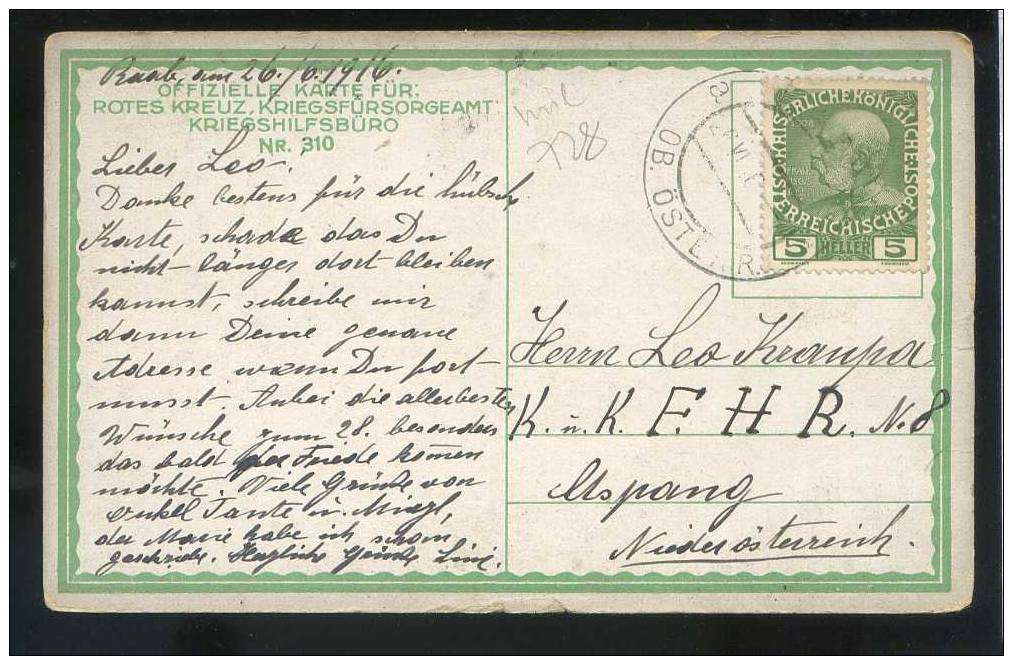 Raab, am 26./6.1916.
OFFIZIELLE KARTE FÜR:
ROTES KREUZ, KRIEGSFÜRSORGEAMT
KRIEGSHILFSBÜRO
NR. 310
Lieber Leo.
Danke bestens für die hübsche
Karte, schade das Du
nicht länger dort bleiben
kannst, schreibe mir
dann Deine genaue
Adresse wann Du fort
musst. Anbei die allerbesten
Wünsche zum 28. besonders
das bald der Friede komen
möchte. Viele Grüße von
onkel Tante u. Mirzl,
der Marie habe ich schon
geschrieb. Herzliche Grüße Lini.
728
OB. ÖSTERR.
KAISERLICHE KÖNIGLICHE ÖSTERREICHISCHE POST
5 HELLER 5
Herrn Leo Kraupa
K. u. K. F. H. R. No. 8
Aspang
Niederösterreich.